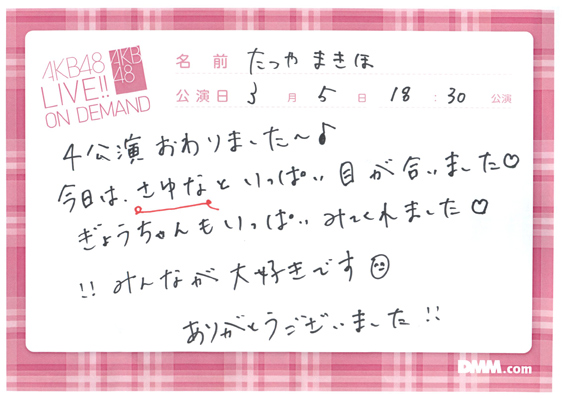 AKB48
LIVE!!
ON DEMAND
AKB
48
名前 たつやまきほ
公演日 3月5日 18:30 公演
4公演おわりました〜♪
今日は、さゆなといっぱい目が合いました♡
ぎょうちゃんもいっぱいみてくれました♡
!! みんなが大好きです
ありがとうございました!!
DMM.com